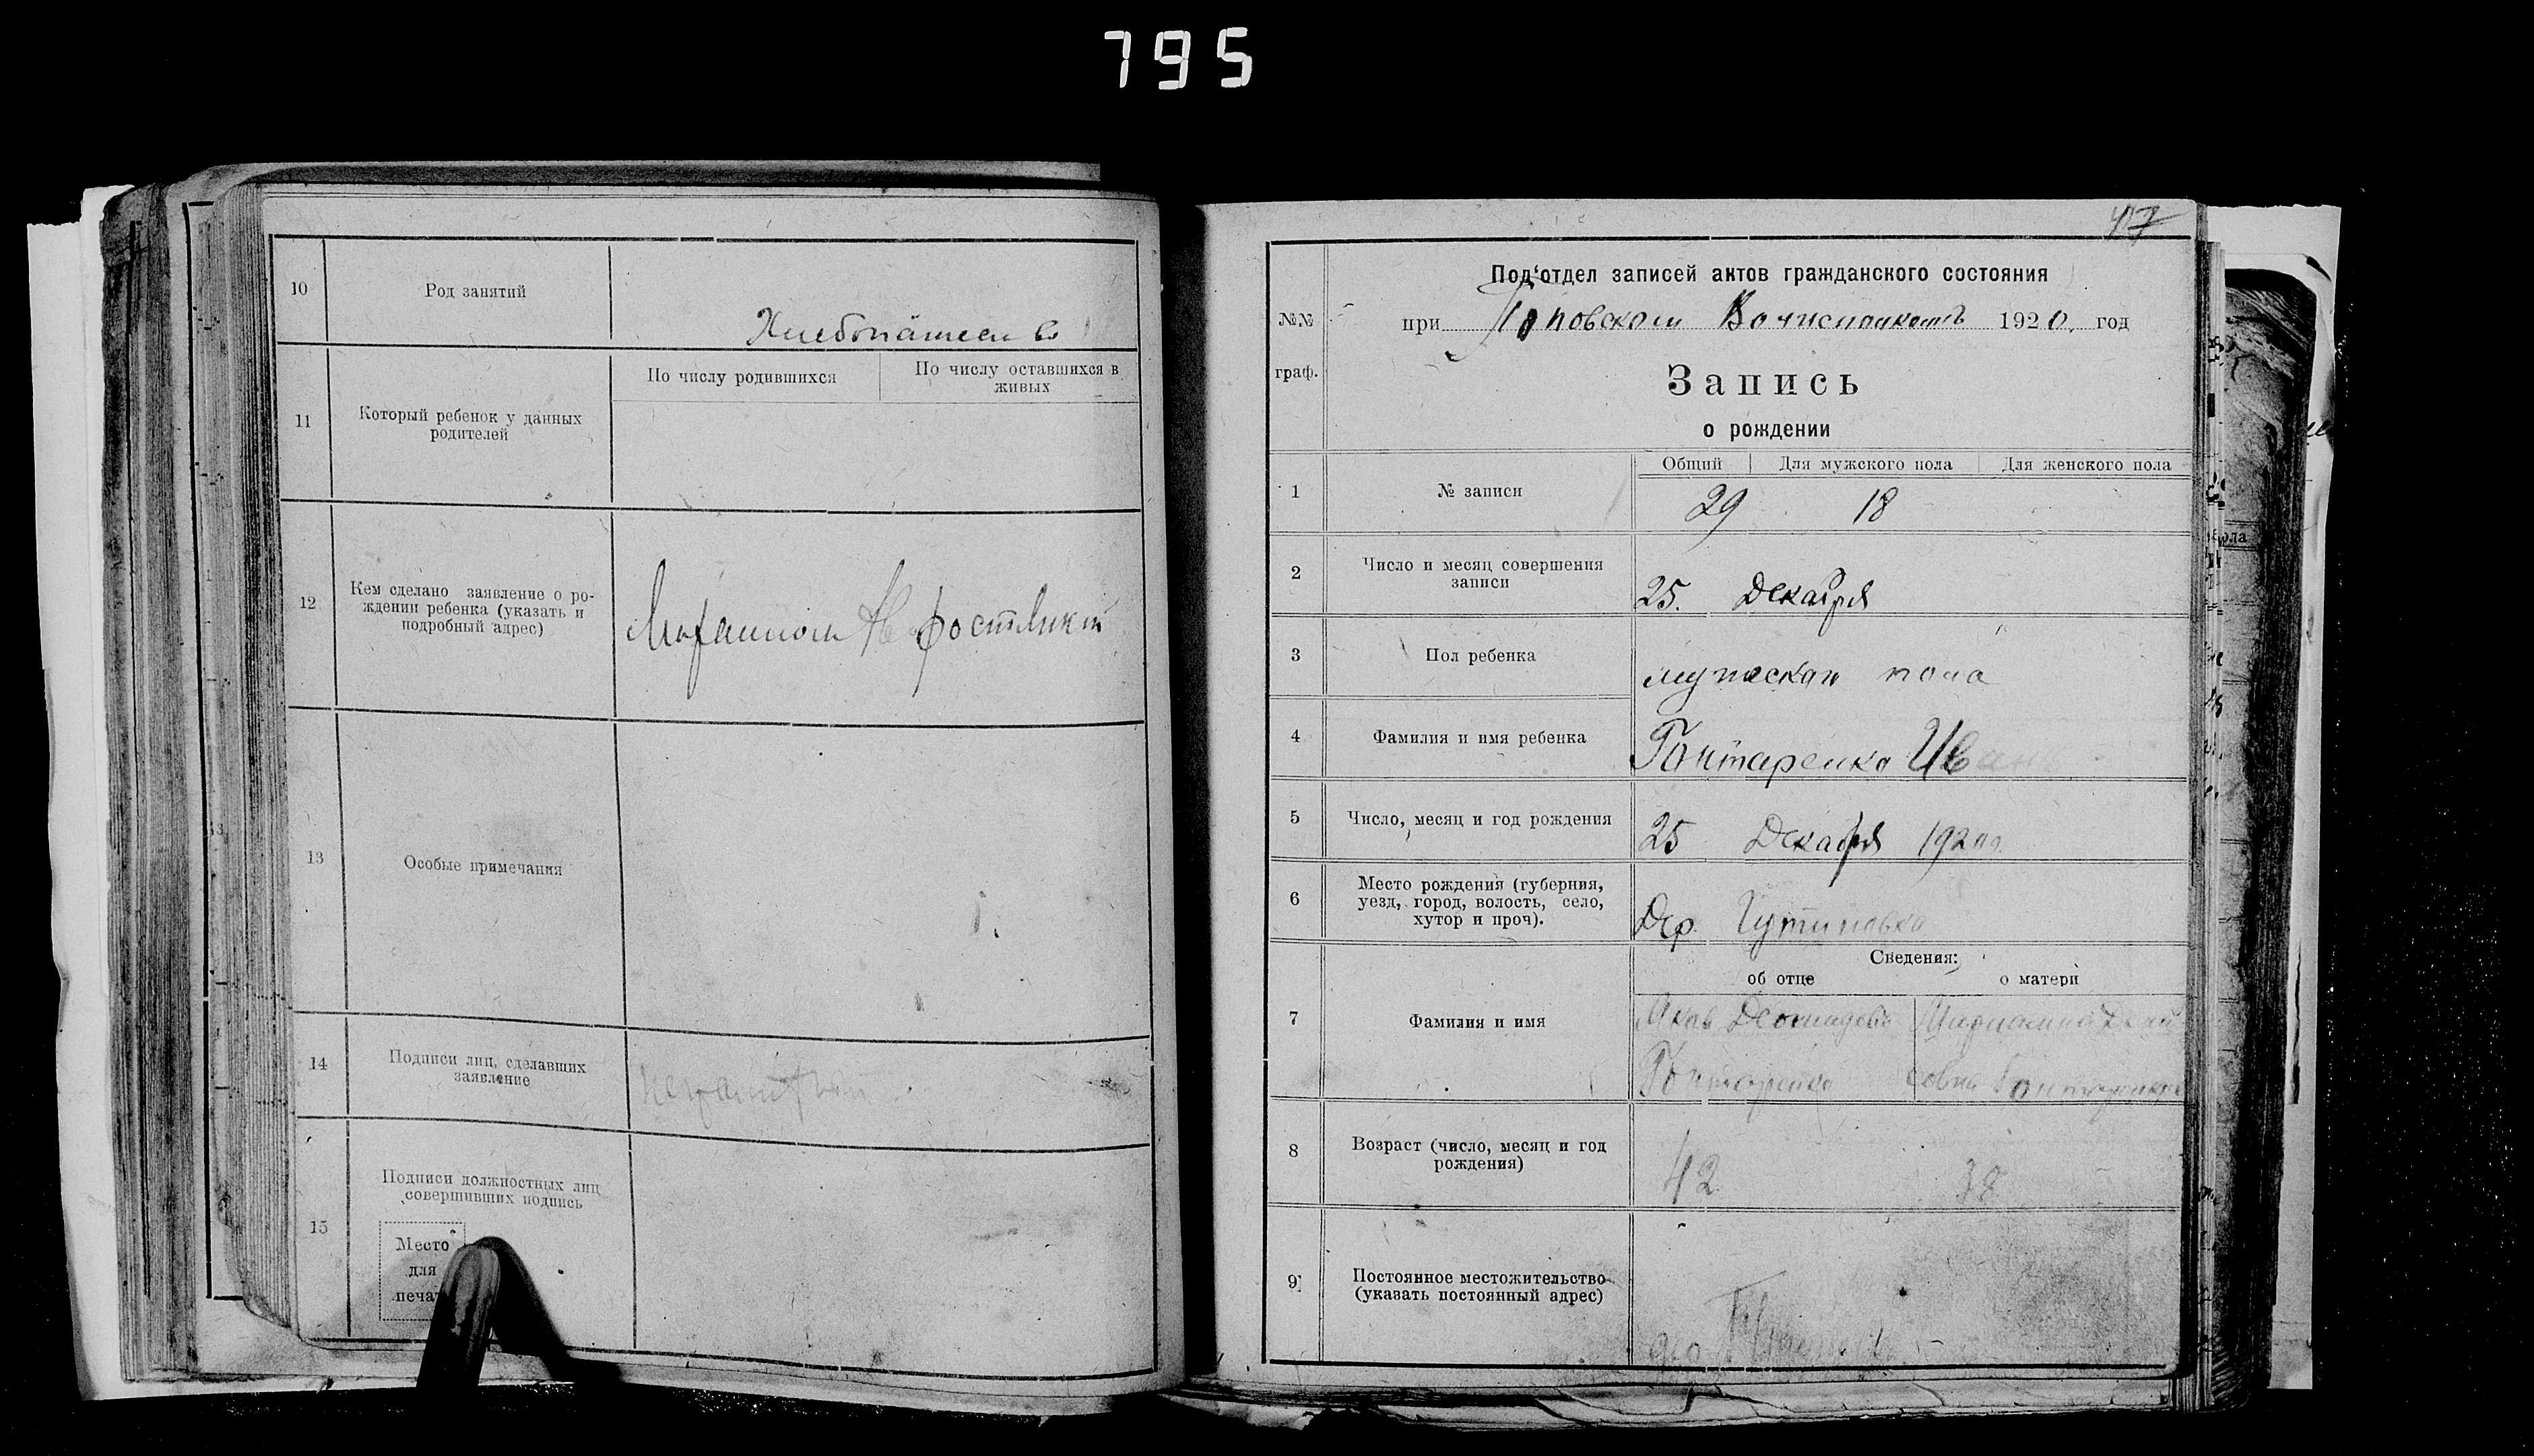 795
10
Род занятий
Хлебопашеств
11
Который ребенок у данных
родителей
По числу родившихся
По числу оставшихся в
живых
12
Кем сделано заявление о ро-
ждении ребенка (указать и
подробный адрес)
13
Особые примечания
14
Подписи лиц, сделавших
заявление
неграмотный
15
Подписи должностных лиц
совершивших подпись
Место
для
печат
47
№№
граф.
Под‘отдел записей актов гражданского состояния
при Поповском Волисполкомъ 1920. год
Запись
о рождении
1
№ записи
Общий
Для мужского пола
Для женского пола
29
18
2
Число и месяц совершения
записи
25. Декабря
3
Пол ребенка
мужскаи пола
4
Фамилия и имя ребенка
Гонтаренко Иван
5
Число, месяц и год рождения
25 Декабря 1920
6
Место рождения (губерния,
уезд, город, волость, село,
хутор и проч).
Дер.
Сведения:
об отце
о матери
7
Фамилия и имя
Яков
Гонтаренко
8
Возраст (число, месяц и год
рождения)
42
38
9
Постоянное местожительство
(указать постоянный адрес)